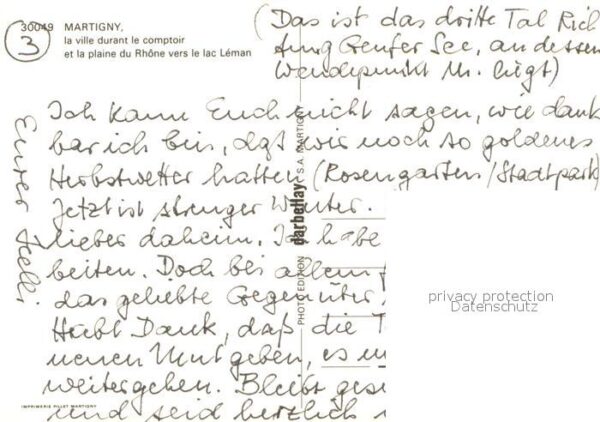 30049 MARTIGNY,
la ville durant le comptoir
et la plaine du Rhône vers le lac Léman
3
(Das ist das dritte Tal Rich
tung Genfer See, an dessen
Wendepunkt M. liegt)
Ich kann Euch nicht sagen, wie dank
bar ich bin, daß wir noch so goldenes
Herbstwetter hatten (Rosengarten/Stadtpark)
Jetzt ist strenger Winter.
lieber daheim. Ich habe
beiten. Doch bei allem
das geliebte Gegenüter,
Habt Dank, daß die
neuen Mut geben, es
weitergehen. Bleibt
und seid herzlich
Eurer
PHOTO EDITION darbellay S.A. MARTIGNY
IMPRIMERIE PILLET MARTIGNY
privacy protection
Datenschutz